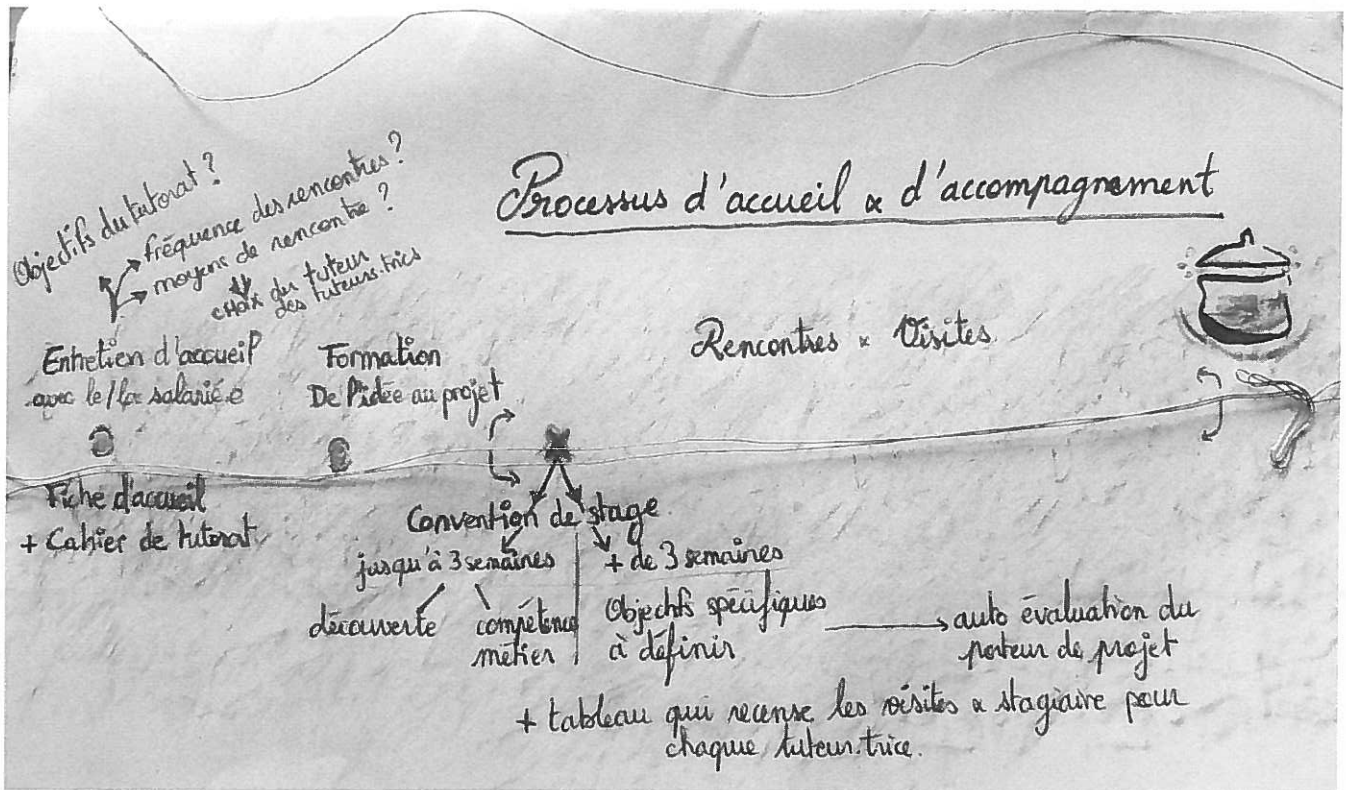 Processus d'accueil & d'accompagnement
Objectifs du tutorat ?
fréquence des rencontres ?
moyens de rencontre ?
choix du tuteur
des tuteurs.trices
Entretien d'accueil
avec le/la salarié.e
Formation
De l'idée au projet
Rencontres & Visites
Fiche d'accueil
+ Cahier de tutorat
Convention de stage
jusqu'à 3 semaines
découverte
compétence
métier
+ de 3 semaines
Objectifs spécifiques
à définir
auto évaluation du
porteur de projet
+ tableau qui recense les visites & stagiaire pour
chaque tuteur.trice.